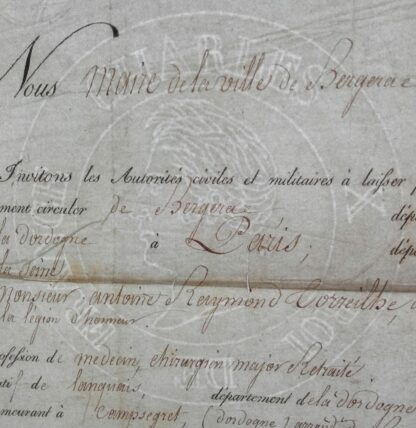 Nous Maire de la ville de Bergerac
Invitons les Autorités civiles et militaires à laisser
ment circuler de Bergerac dépa
la dordogne à Paris, dépa
la Seine
Monsieur antoine Raymond
la légion d'honneur
ofession de médecin chirurgien major Retraité
atif de lanquais, département de la Dordogne
meurant à Campsegret, (dordogne) arrond